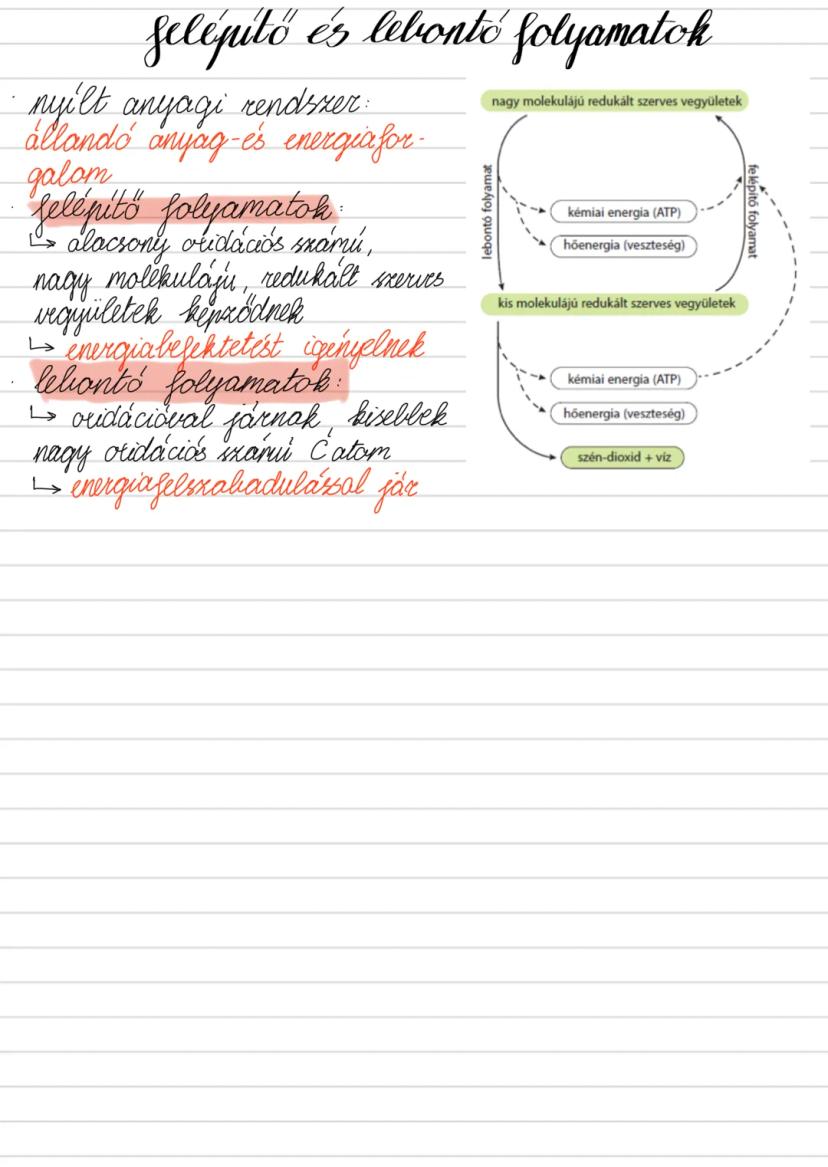 felépítő és lebontó folyamatok
· nyílt anyagi rendszer:
állandó anyag-és energiafor-
galom
· felépítő folyamatok:
↳ alacsony oxidációs számú,
nagy molekulájú, redukált szerves
vegyületek képződnek
↳ energiabefektetést igényelnek
· lebontó folyamatok:
↳ oxidációval járnak, kisebbek
nagy oxidációs számú C atom
↳ energiafelszabadulással jár
nagy molekulájú redukált szerves vegyületek
lebontó folyamat
felépítő folyamat
kémiai energia (ATP)
hőenergia (veszteség)
kis molekulájú redukált szerves vegyületek
kémiai energia (ATP)
hőenergia (veszteség)
szén-dioxid + víz